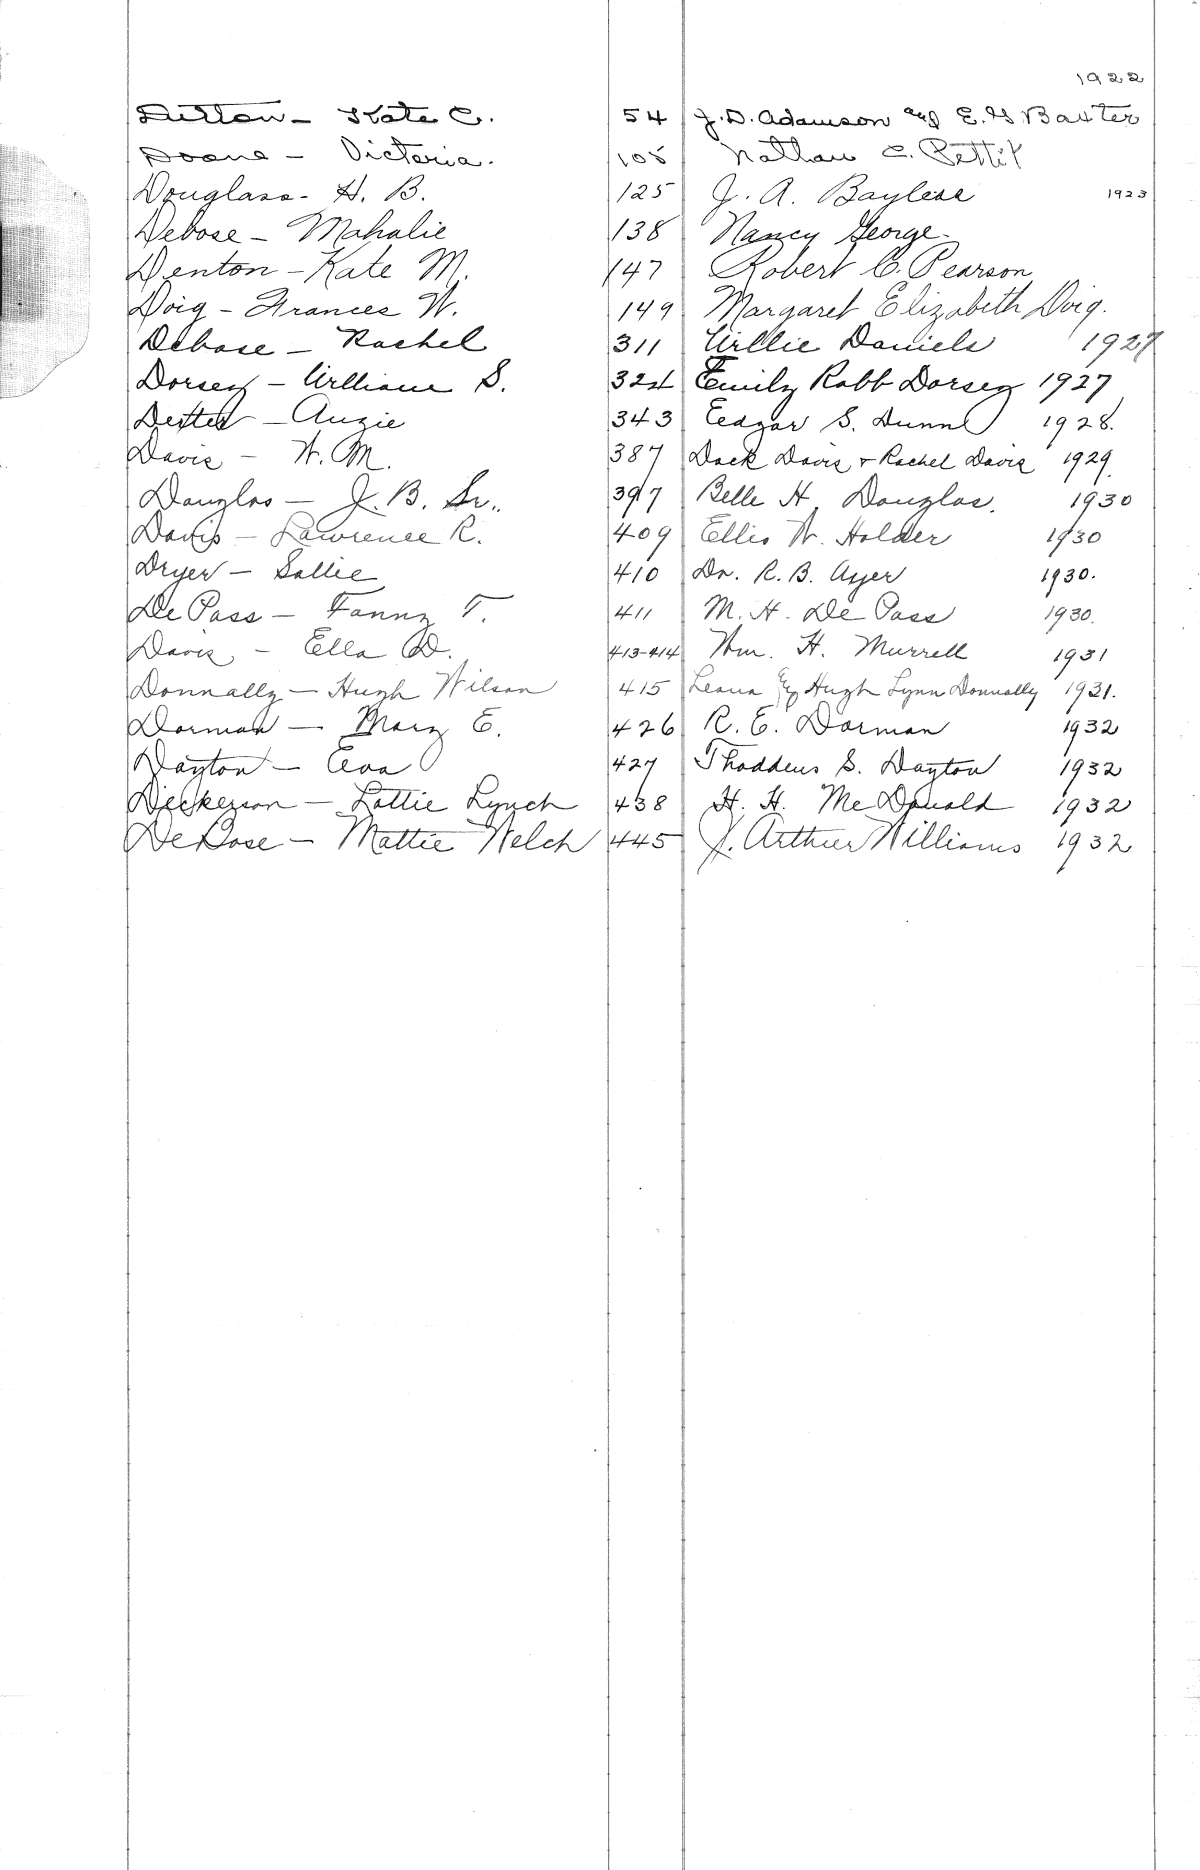 1922
Dutton - Kate C. 54 J. D. Adamson and E. G Baxter
Doane - Victoria. 105 Nathan C. Pettit
Douglass - H. B. 125 J. A. Bayless 1923
Debose - Mahalie 138 Nancy George.
Denton - Kate M. 147 Robert C. Pearson
Doig - Frances W. 149 Margaret Elizabeth Doig.
Debose - Rachel 311 Willie Daniels 1927
Dorsey - William S. 324 Emily Robb Dorsey 1927
Dexter - Auzie 343 Edgar S. Dunn 1928.
Davis - W. M. 387 Dock Davis + Rachel Davis 1929.
Douglas - J. B. Sr. 397 Belle H. Douglas. 1930
Davis - Lawrence R. 409 Ellis W. Holder 1930
Dryer - Sallie 410 Dr. R. B. Ayer 1930.
De Pass - Fanny T. 411 M. H. De Pass 1930.
Davis - Ella D. 413-414 Wm. H. Murrell 1931
Donnally - Hugh Wilson 415 Leona Hugh Lynn Donnally 1931.
Dorman - Mary E. 426 R. E. Dorman 1932
Dayton - Eva 427 Thaddeus S. Dayton 1932
Dickerson - Lottie Lynch 438 H. H. McDonald 1932
DeBose - Mattie Welch 445 J. Arthur Williams 1932